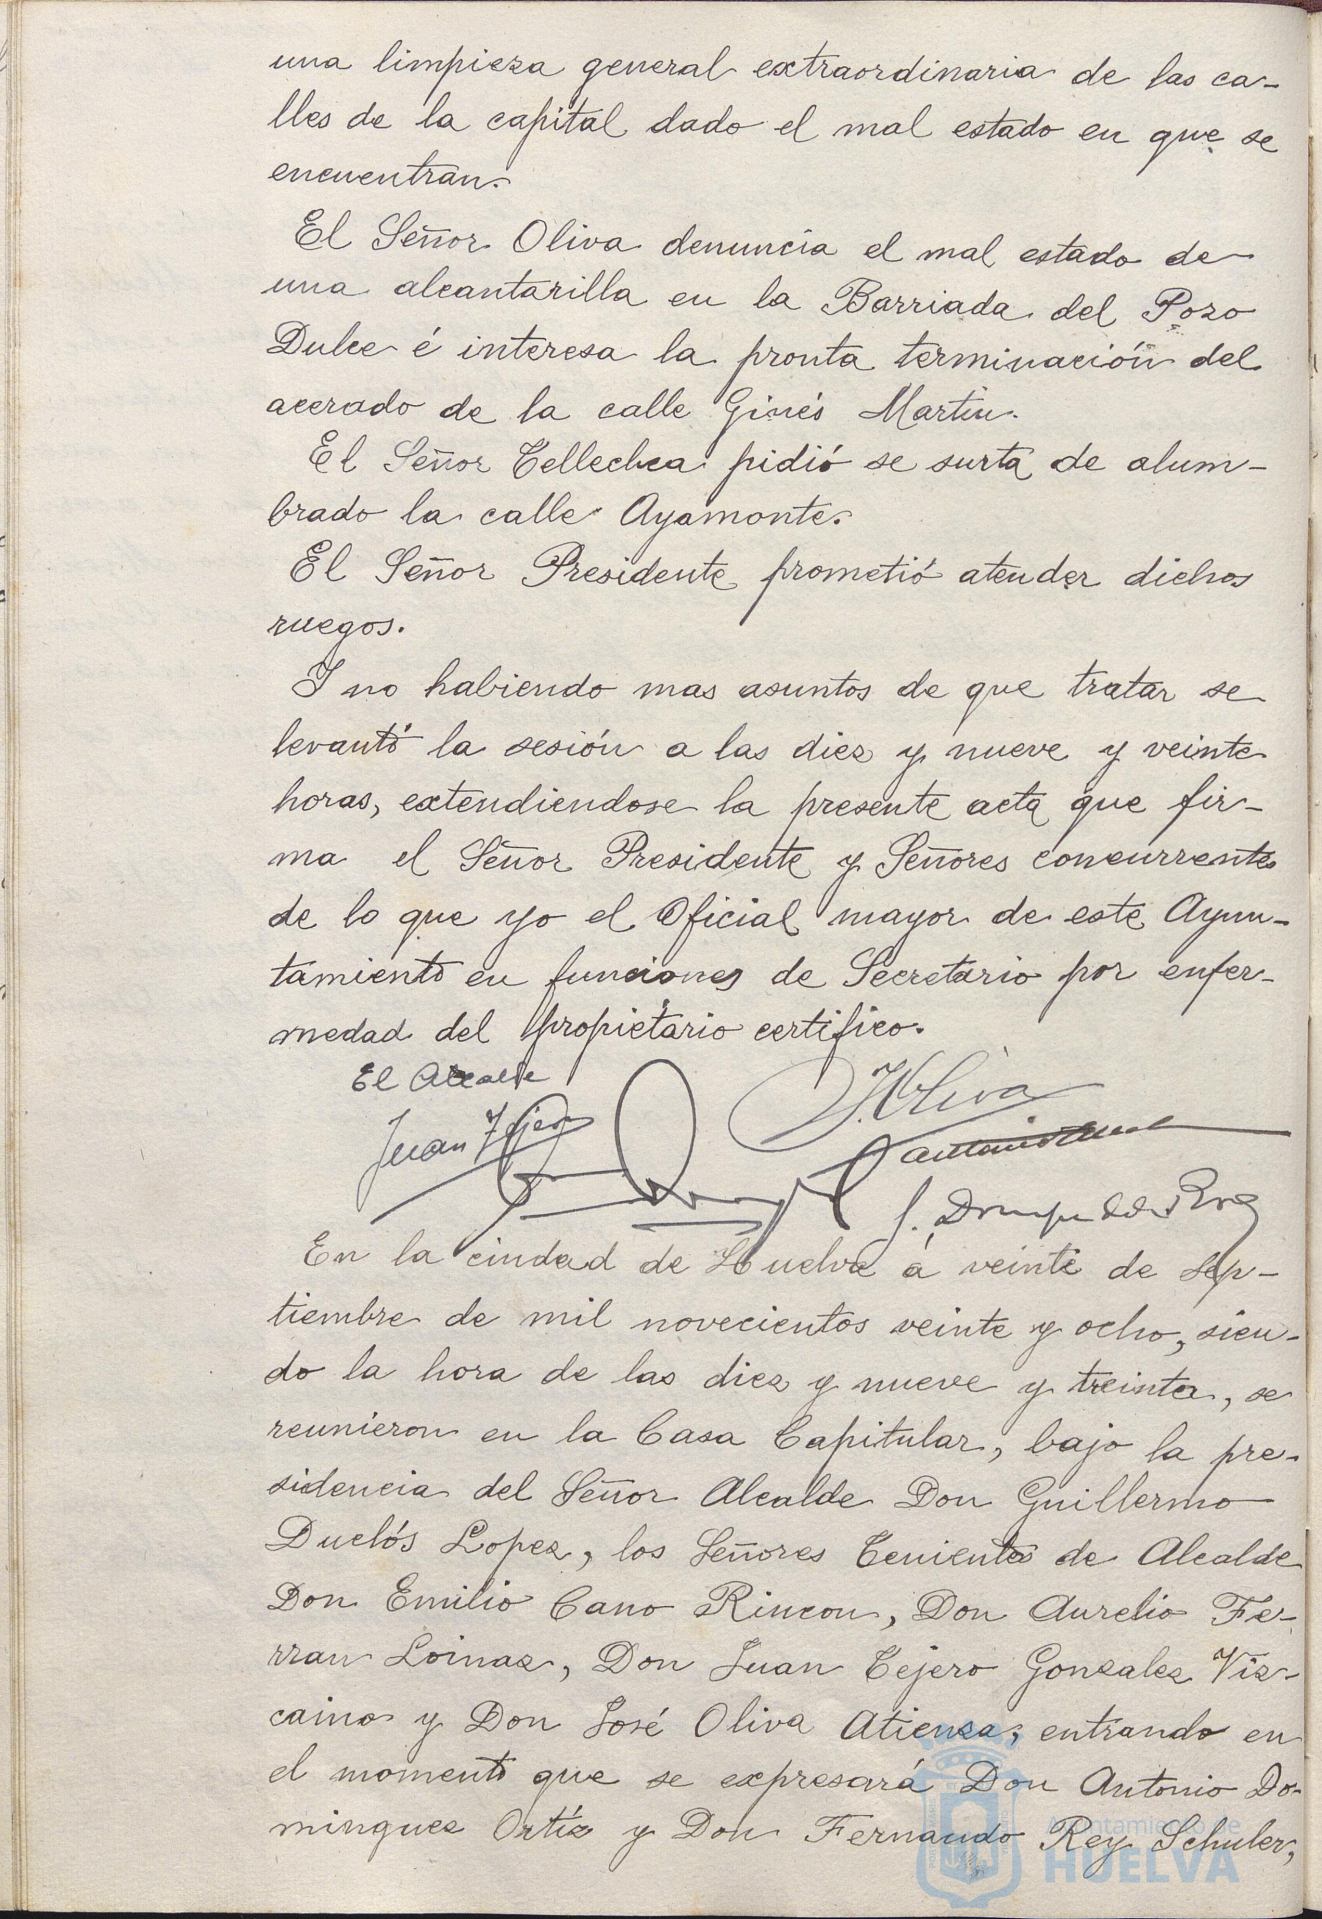 una limpieza general extraordinaria de las ca-
lles de la capital dado el mal estado en que se
encuentran.
El Señor Oliva denuncia el mal estado de
una alcantarilla en la Barriada del Pozo
Dulce é interesa la pronta terminación del
acerado de la calle Ginés Martin.
El Señor Tellechea pidió se surta de alum-
brado la calle Ayamonte.
El Señor Presidente prometió atender dichos
ruegos.
Y no habiendo mas asuntos de que tratar se
levantó la sesión a las diez y nueve y veinte
horas, extendiendose la presente acta que fir-
ma el Señor Presidente y Señores concurrentes
de lo que yo el Oficial mayor de este Ayun-
tamiento en funciones de Secretario por enfer-
medad del propietario certifico.
El Alcalde
Juan Tejero
J. Oliva
Antonio
En la ciudad de Huelva á veinte de sep-
tiembre de mil novecientos veinte y ocho, sien-
do la hora de las diez y nueve y treinta, se
reunieron en la Casa Capitular, bajo la pre-
sidencia del Señor Alcalde Don Guillermo
Duclós Lopez, los Señores Tenientes de Alcalde
Don Emilio Cano Rincon, Don Aurelio Fe-
rran Loinaz, Don Juan Tejero Gonzalez Viz-
caino y Don José Oliva Atienza, entrando en
el momento que se expresará Don Antonio Do-
minguez Ortíz y Don Fernando Rey Schuler,
Ayuntamiento de
HUELVA